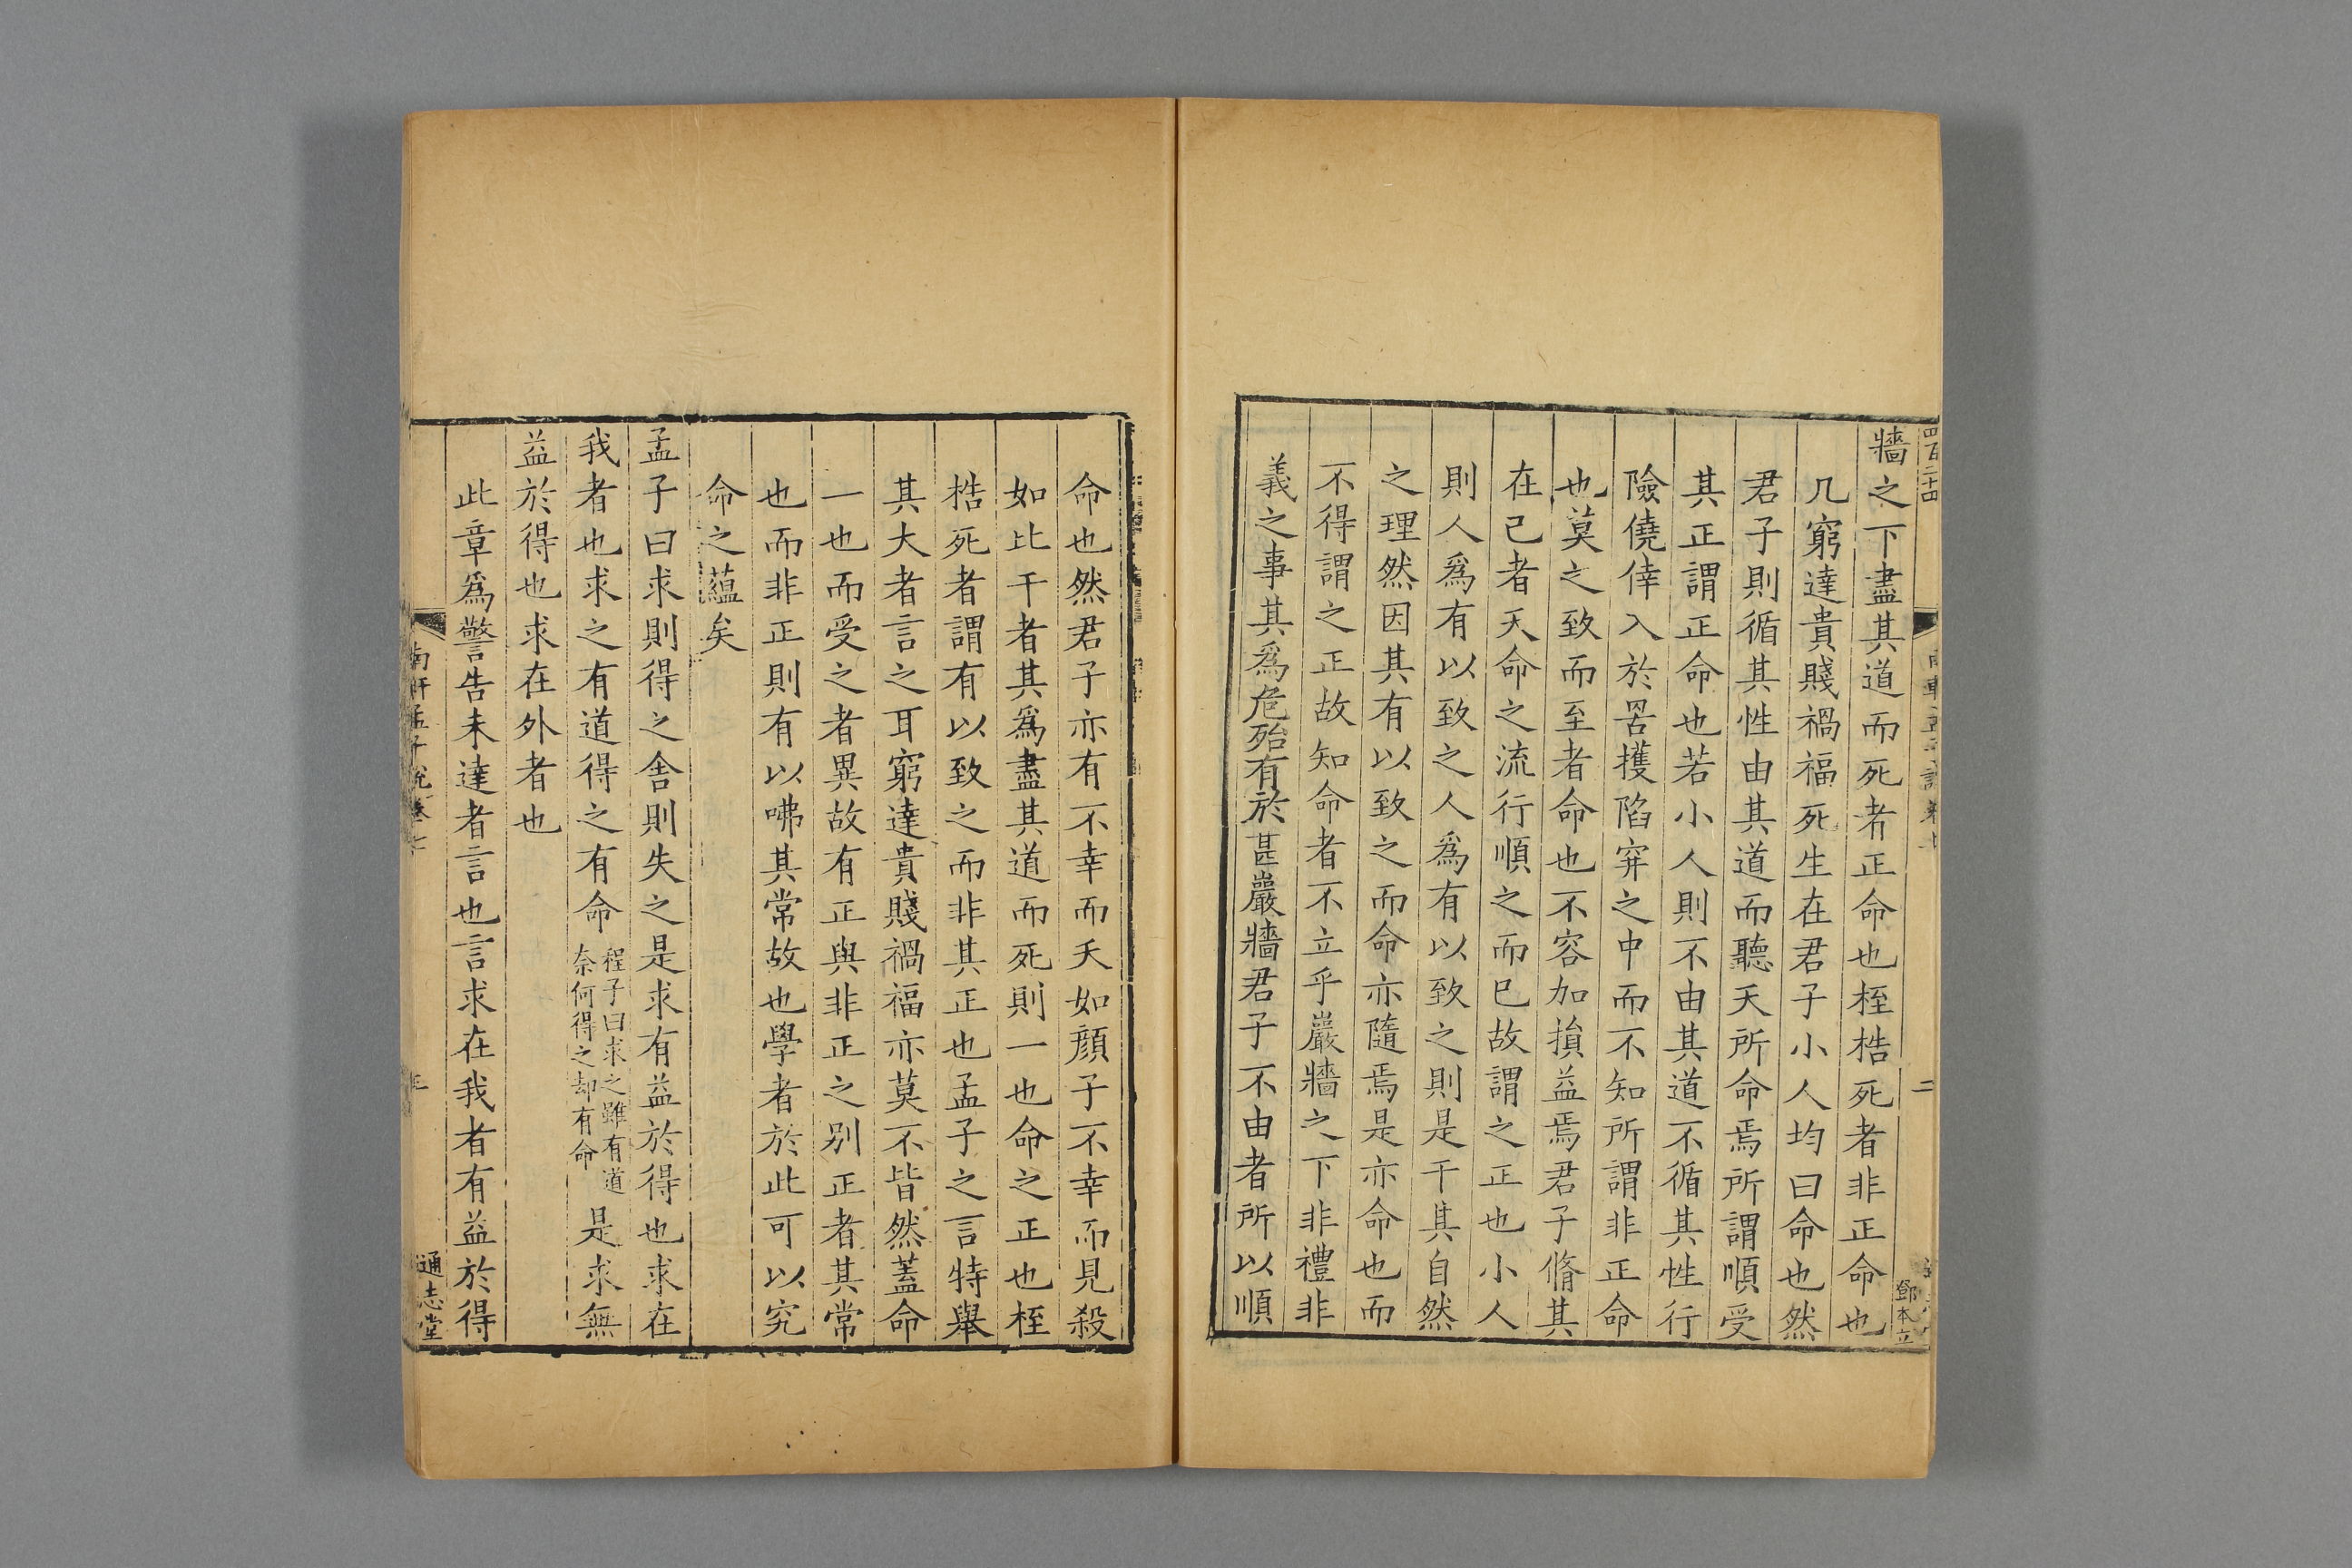 四百二十四
二
鄧本立
牆之下盡其道而死者正命也桎梏死者非正命也
凡窮達貴賤禍福死生在君子小人均曰命也然
君子則循其性由其道而聽天所命焉所謂順受
其正謂正命也若小人則不由其道不循其性行
險僥倖入於罟擭陷穽之中而不知所謂非正命
也莫之致而至者命也不容加損益焉君子脩其
在己者天命之流行順之而已故謂之正也小人
則人爲有以致之人爲有以致之則是干其自然
之理然因其有以致之而命亦隨焉是亦命也而
不得謂之正故知命者不立乎巖牆之下非禮非
義之事其爲危殆有於甚巖牆君子不由者所以順
命也然君子亦有不幸而夭如顏子不幸而見殺
如比干者其爲盡其道而死則一也命之正也桎
梏死者謂有以致之而非其正也孟子之言特舉
其大者言之耳窮達貴賤禍福亦莫不皆然蓋命
一也而受之者異故有正與非正之別正者其常
也而非正則有以咈其常故也學者於此可以究
命之蘊矣
孟子曰求則得之舍則失之是求有益於得也求在
我者也求之有道得之有命程子曰求之雖有道奈何得之却有命是求無
益於得也求在外者也
此章爲警告未達者言也言求在我者有益於得
南軒孟子說卷七
通志堂